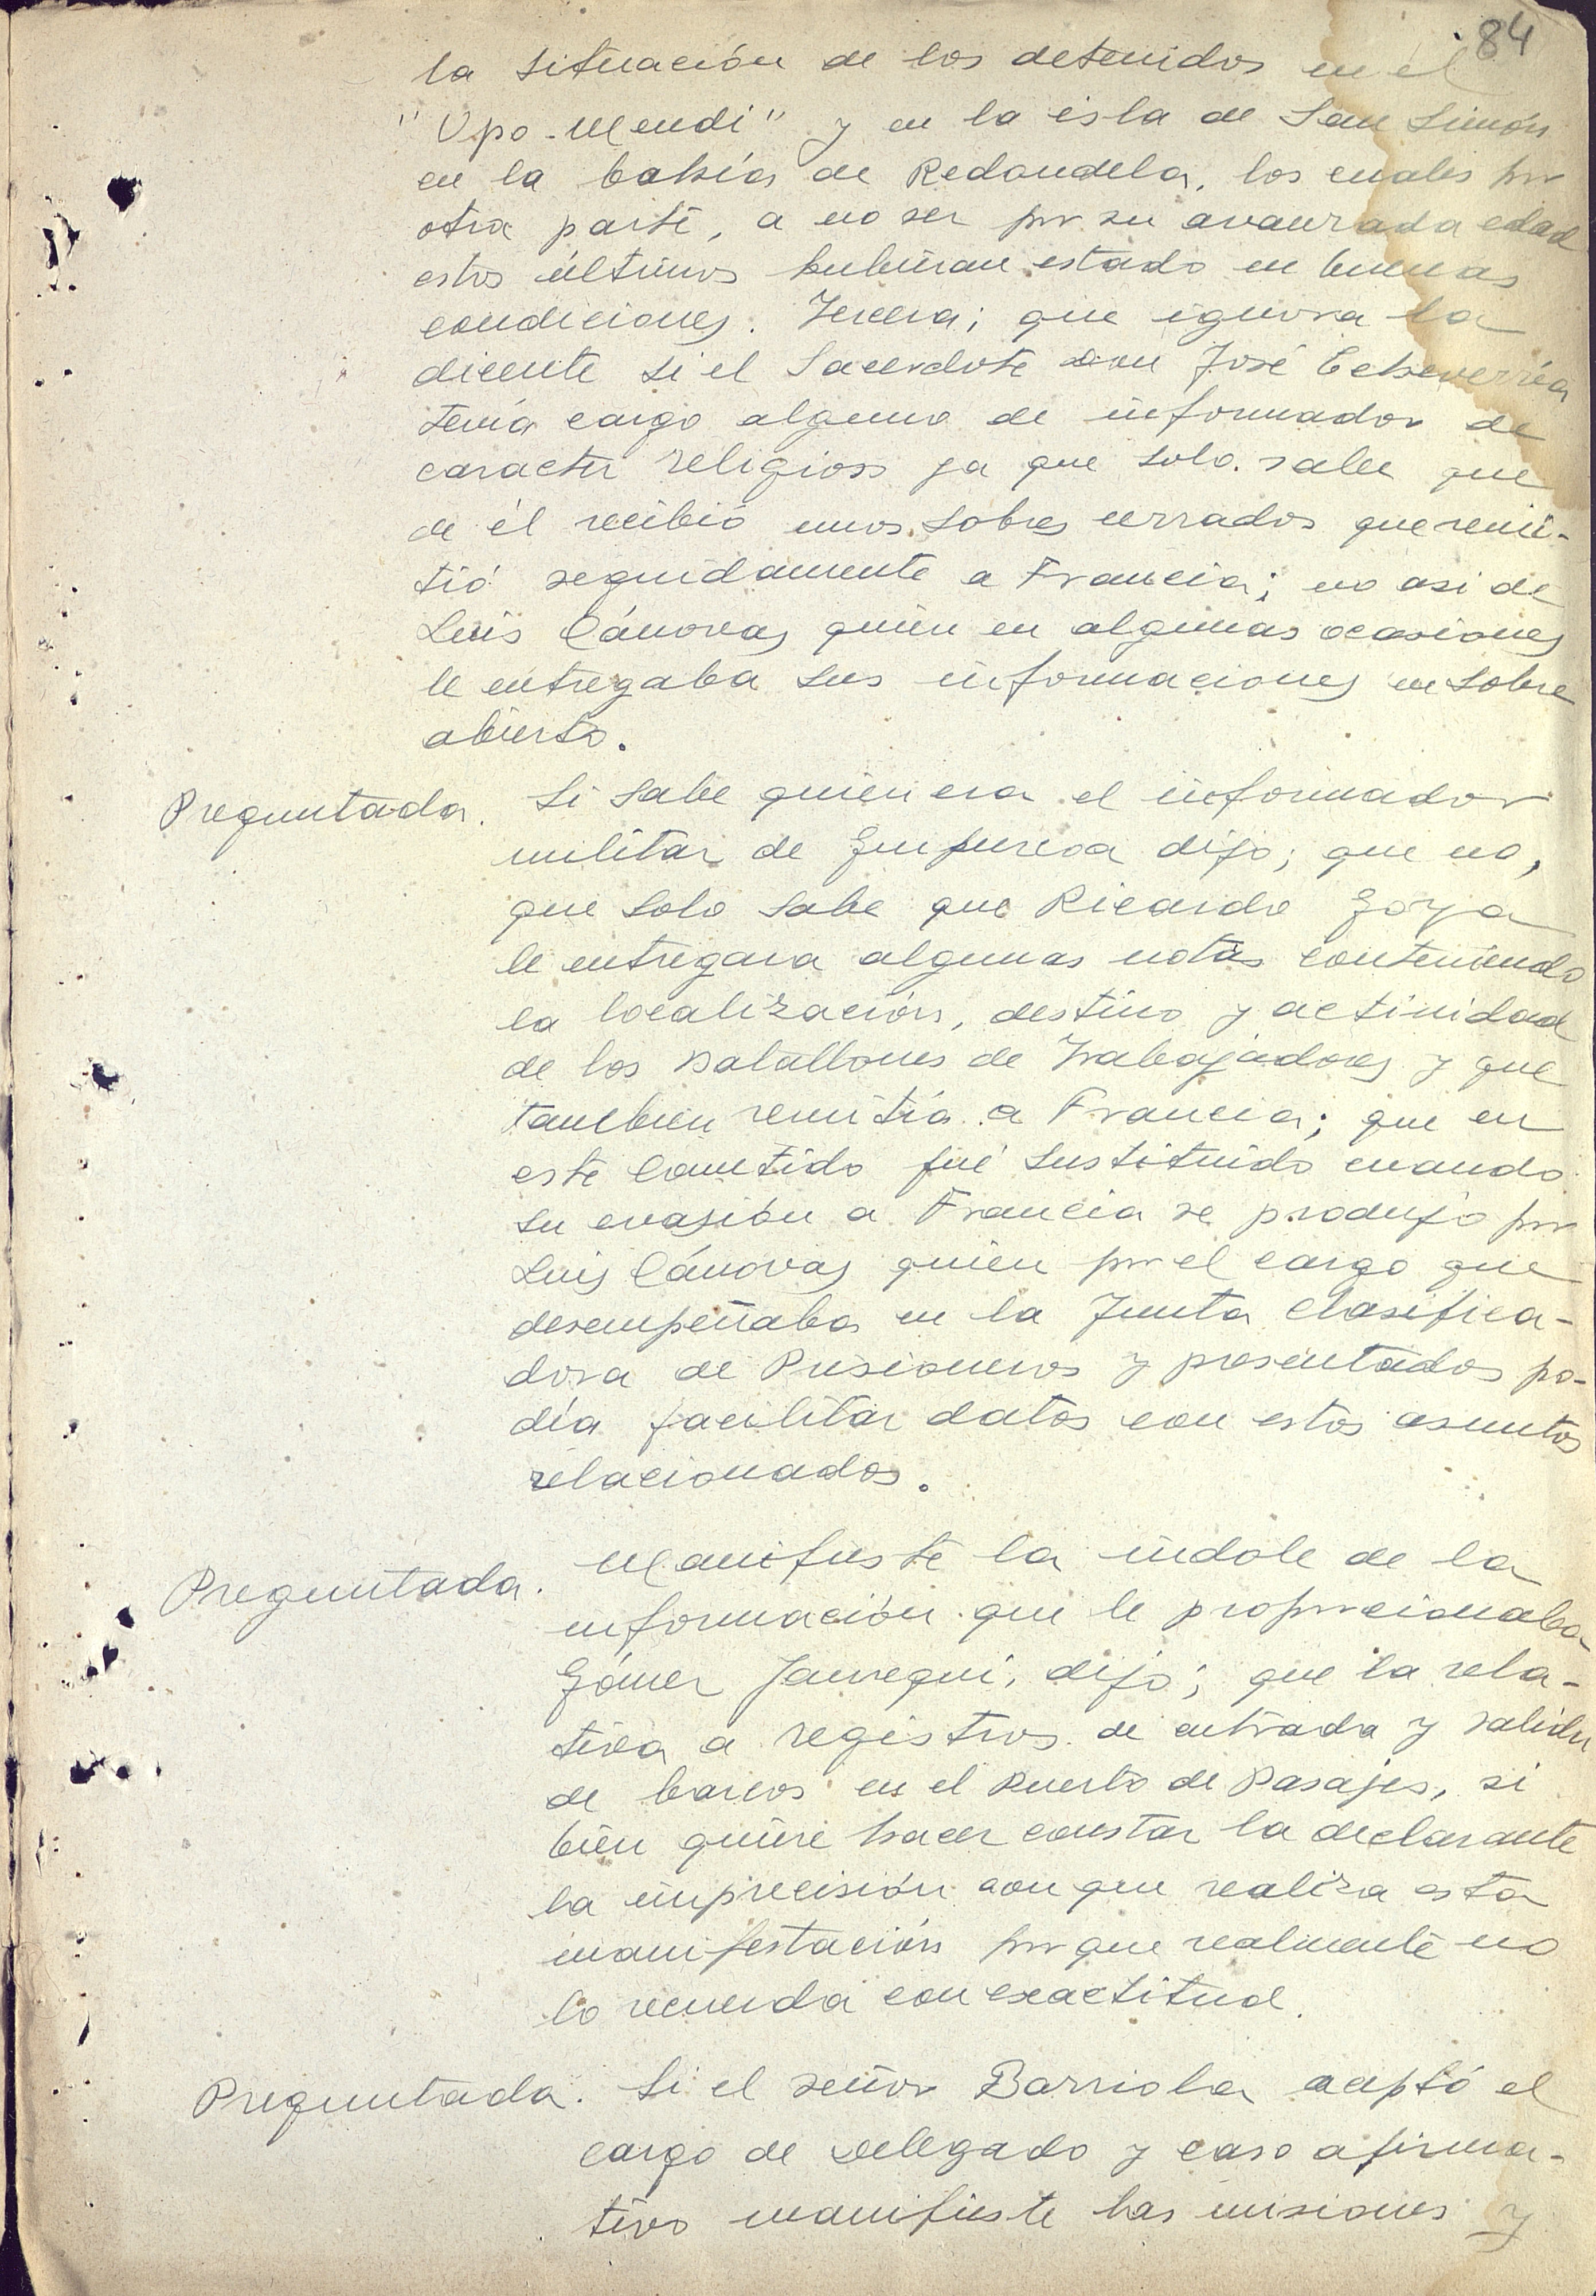 84
la situación de los detenidos en el
"Upo-Mendi" y en la isla de San Simón
en la bahía de Redondela, los cuales por
otra parte, a no ser por su avanzada edad
estos últimos hubieran estado en buenas
condiciones. Tercera; que ignora la
dicente si el Sacerdote don José Echeverría
tenía cargo alguno de informador de
caracter religioso ya que solo sabe que
de él recibió unos sobres cerrados que remi-
tió seguidamente a Francia; no asi de
Luis Cánovas quien en algunas ocasiones
le entregaba sus informaciones en sobre
abierto.
Preguntada. Si sabe quien era el informador
militar de Guipuzcoa dijo; que no,
que solo sabe que Ricardo Goya
le entregara algunas notas conteniendo
la localización, destino y actividad
de los Batallones de Trabajadores y que
tambien remitía a Francia; que en
este cometido fué sustituido cuando
su evasión a Francia se produjo por
Luis Cánovas quien por el cargo que
desempeñaba en la Junta Clasifica-
dora de Prisioneros y presentados po-
día facilitar datos con estos asuntos
relacionados.
Preguntada. Manifieste la indole de la
información que le proporcionaba
Gómez Jauregui, dijo; que la rela-
tiva a registros de entrada y salida
de barcos en el Puerto de Pasajes, si
bien quiere hacer constar la declarante
la imprecisión con que realiza esta
manifestación por que realmente no
lo recuerda con exactitud.
Preguntada. Si el señor Barriola aceptó el
cargo de Delegado y caso afirma-
tivo manifieste las misiones y